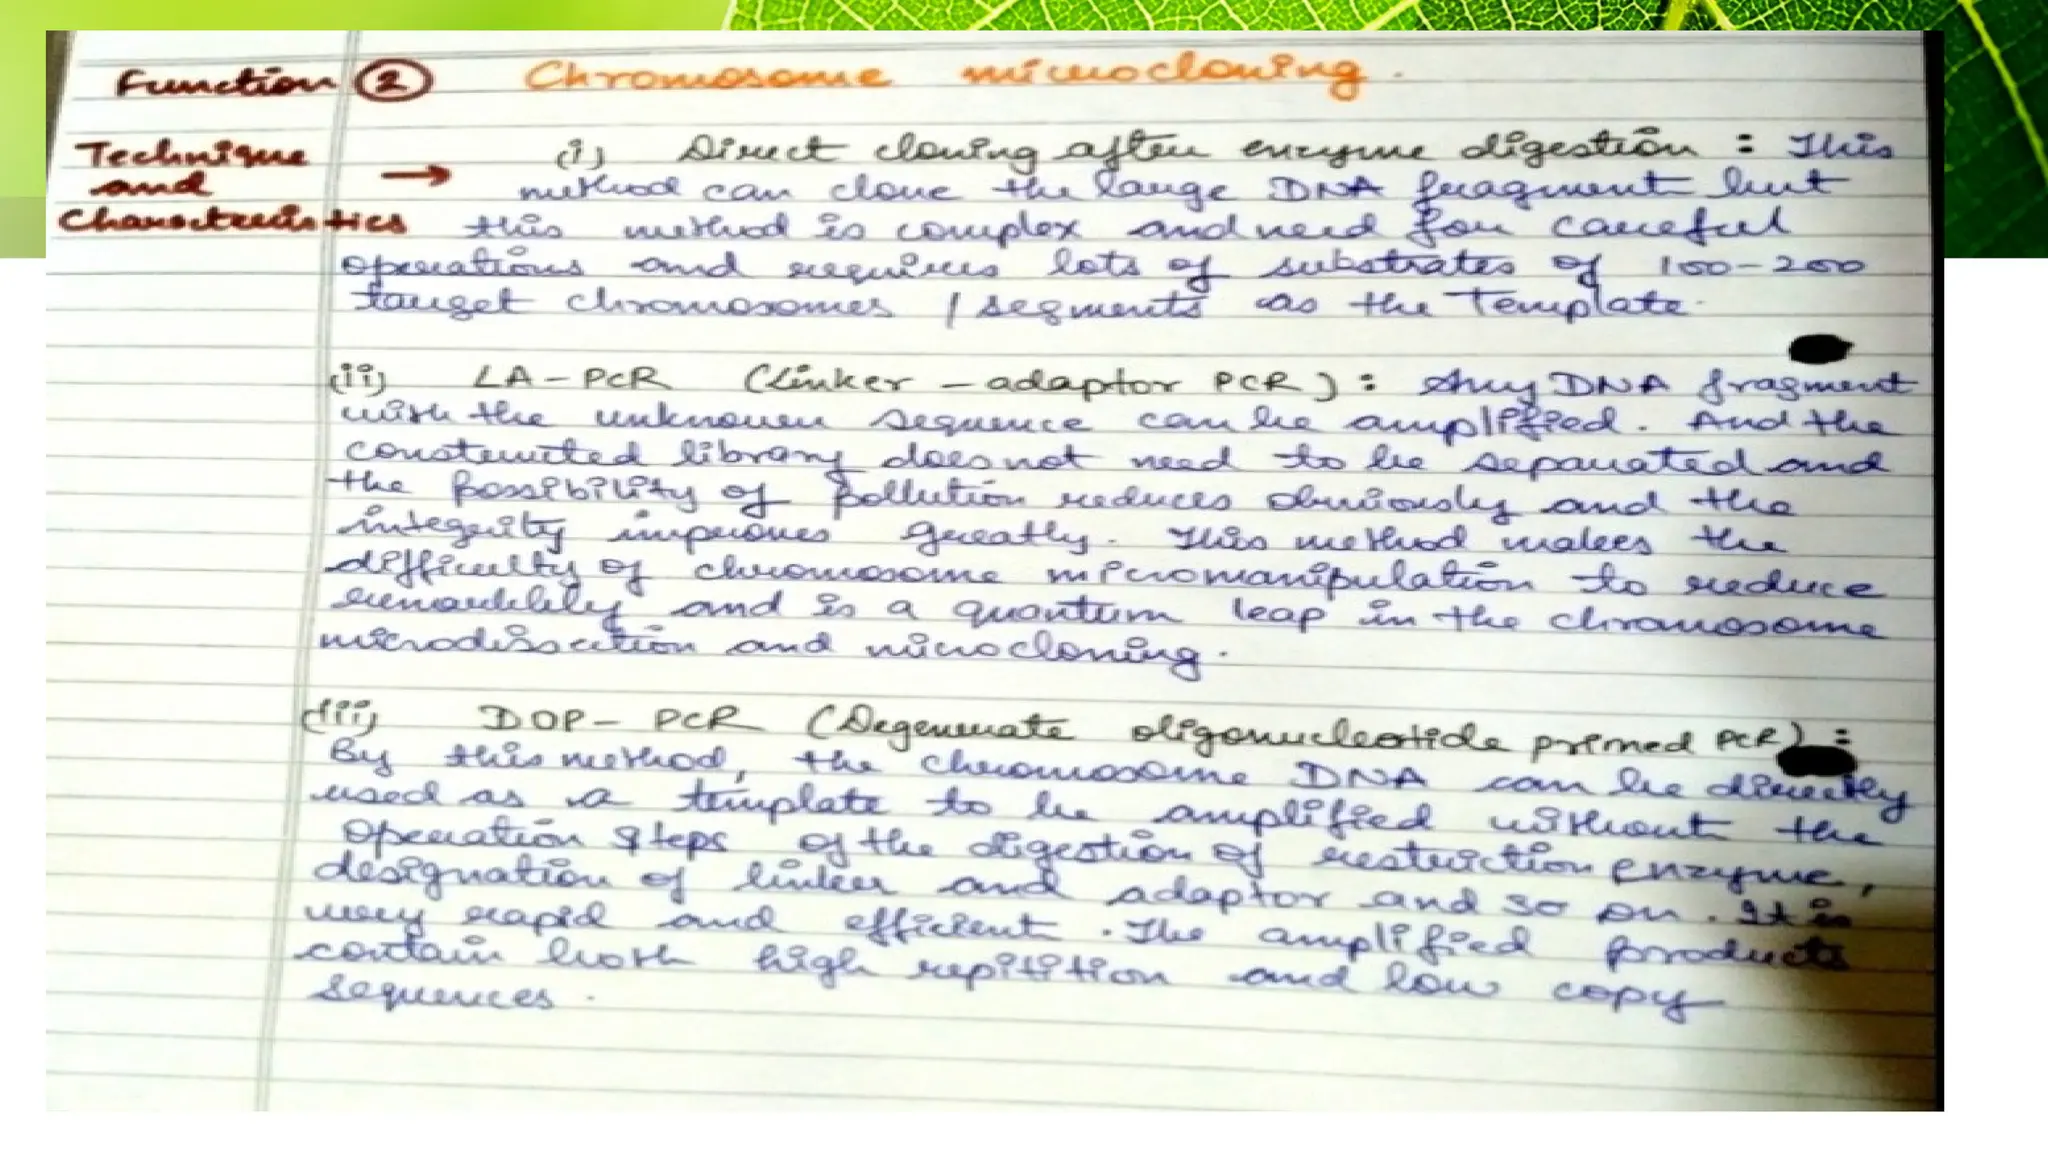 Function ② Chromosome microcloning.
Technique and Characteristics → (i) Direct cloning after enzyme digestion : This
method can clone the large DNA fragment but
this method is complex and need for careful
operations and requires lots of substrates of 100-200
target chromosomes / segments as the Template.
(ii) LA-PCR (Linker - adaptor PCR) : Any DNA fragment
with the unknown sequence can be amplified. And the
constructed library does not need to be separated and
the possibility of pollution reduces obviously and the
integrity improves greatly. This method makes the
difficulty of chromosome micromanipulation to reduce
remarkably and is a quantum leap in the chromosome
microdissection and microcloning.
(iii) DOP- PCR (Degenerate oligonucleotide primed PCR) :
By this method, the chromosome DNA can be directly
used as a template to be amplified without the
operation steps of the digestion of restriction enzyme,
designation of linker and adaptor and so on. It is
very rapid and efficient. The amplified products
contain both high repitition and low copy
sequences.